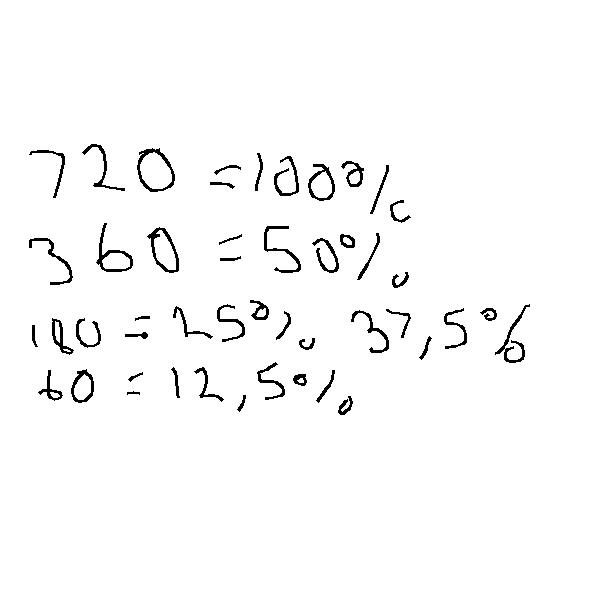 720 = 100%
360 = 50%
180 = 25% 37,5%
60 = 12,5%